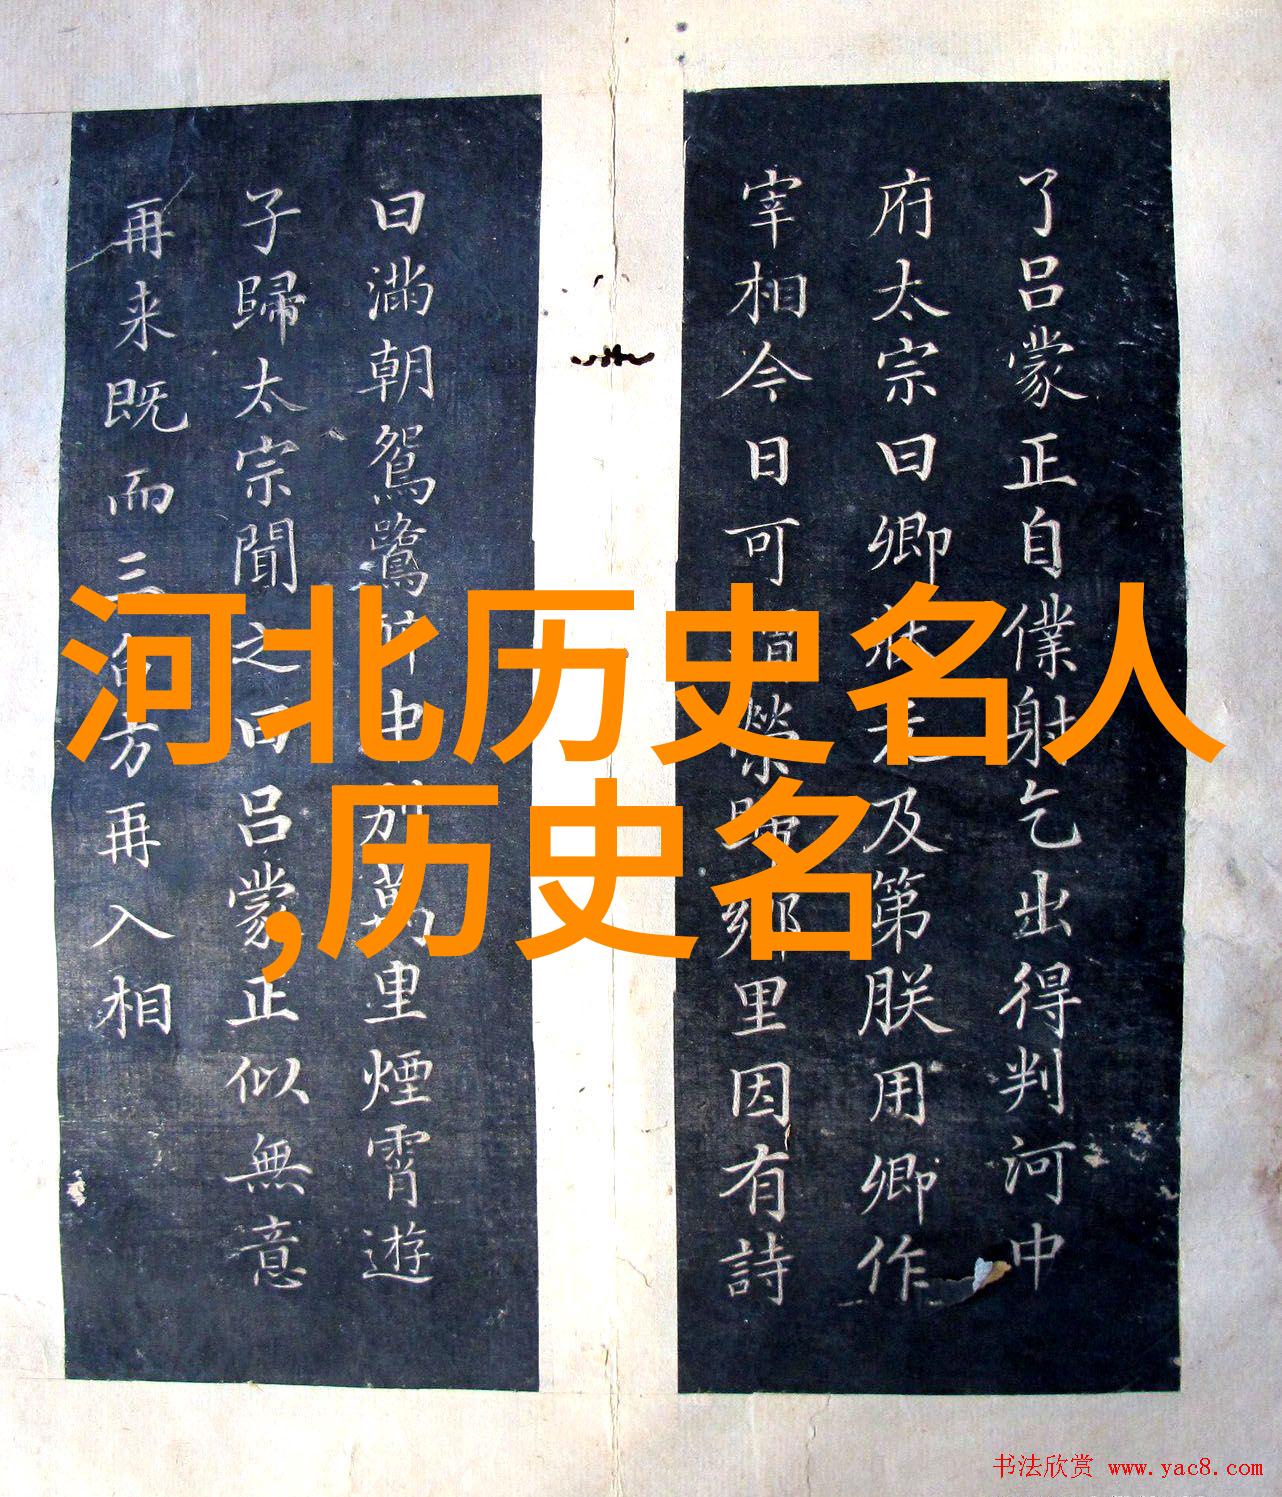 了吕蒙正自僕射乞出得判河中
府太宗曰卿状及第朕用卿作
宰相今日可榮鄉里因有詩
曰滿朝鴛鷺中别萬里煙霄遊
子歸太宗聞之曰吕蒙正似無意
再来既而三方再入相
河北历史名人
,历史名
书法欣赏 www.yac8.com